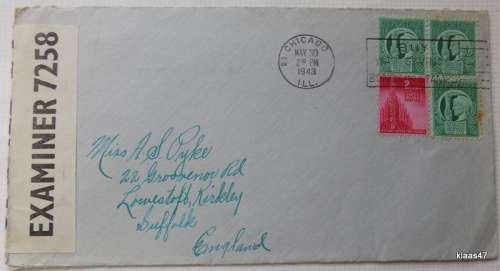 EXAMINER 7258
CHICAGO
MAY 30
2 PM
1943
ILL.
BUY
2
Miss A S Pyke
22 Grosvenor Rd
Lowestoft, Kirkley
Suffolk
England
klaas47